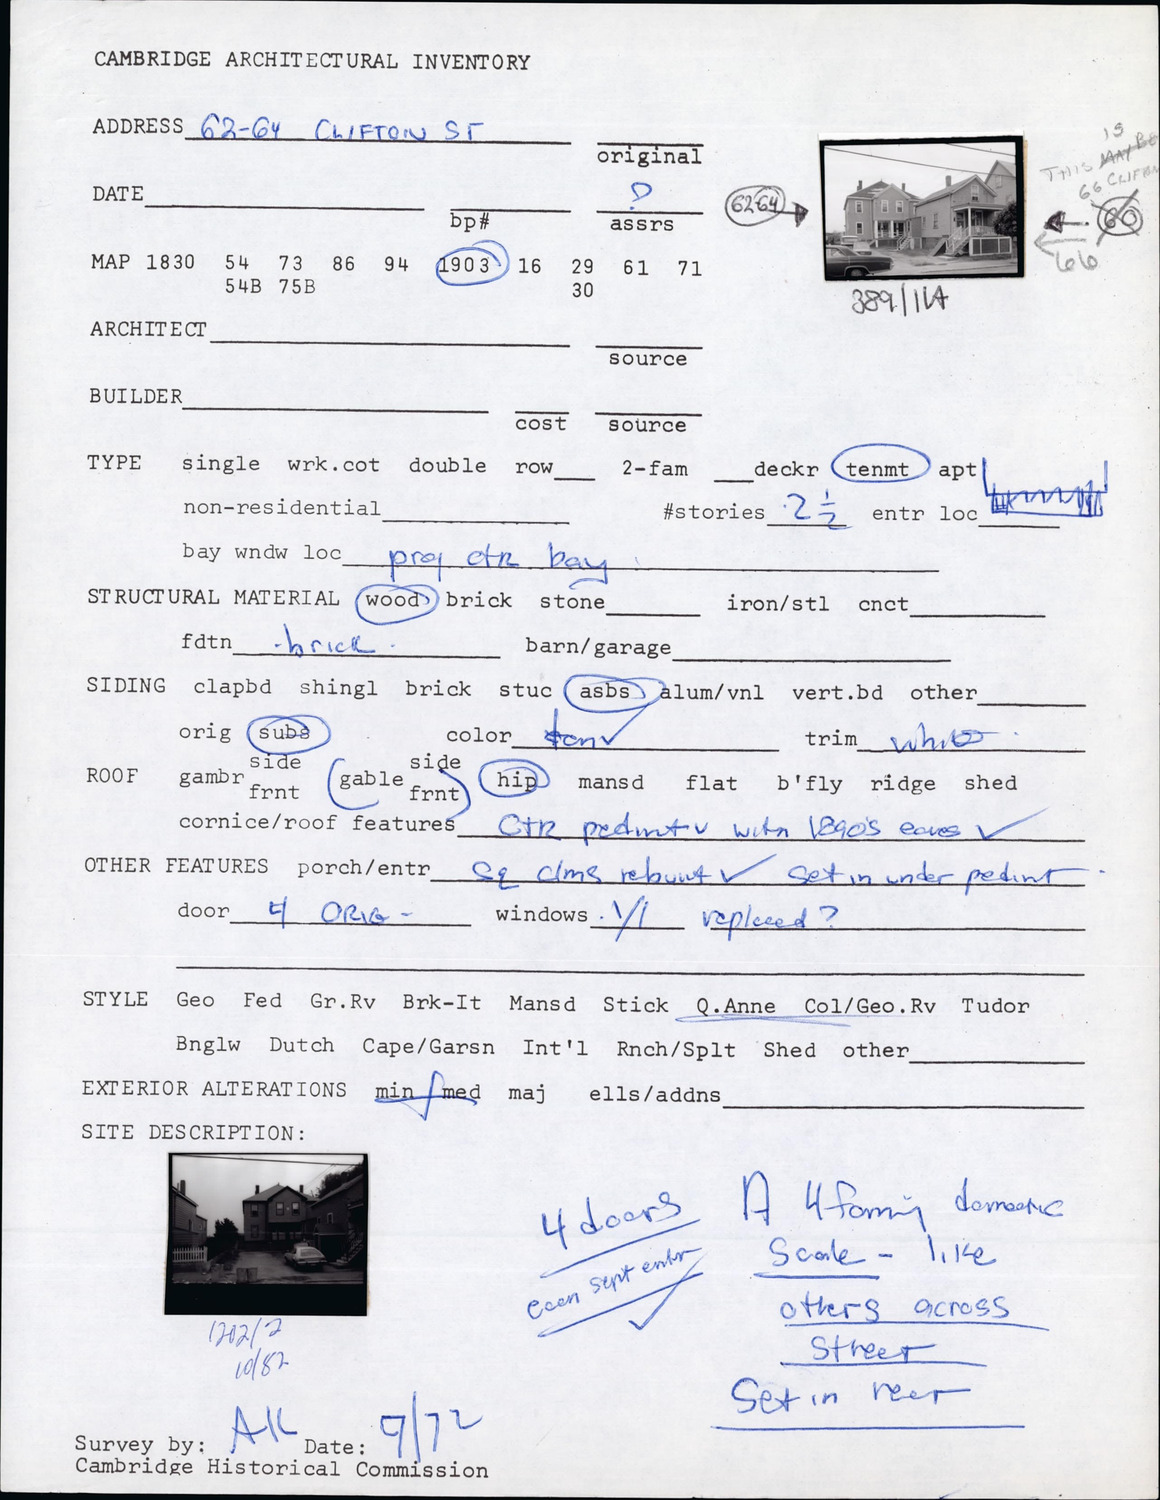 CAMBRIDGE ARCHITECTURAL INVENTORY
ADDRESS 62-64 CLIFTON ST
original
IS
THIS MAY BE
66 CLIFTON
DATE ?
bp# assrs
62-64
60
66
389/11A
MAP 1830 54 73 86 94 1903 16 29 61 71
54B 75B 30
ARCHITECT
source
BUILDER
cost source
TYPE single wrk.cot double row 2-fam deckr tenmt apt
non-residential #stories 2 1/2 entr loc
bay wndw loc proj ctr bay
STRUCTURAL MATERIAL wood brick stone iron/stl cnct
fdtn brick barn/garage
SIDING clapbd shingl brick stuc asbs alum/vnl vert.bd other
orig subs color tan trim white
ROOF gambr side frnt gable side frnt hip mansd flat b'fly ridge shed
cornice/roof features Ctr pedimt with 1890's eaves
OTHER FEATURES porch/entr Sq clms rebuilt Set in under pedimt
door 4 ORIG - windows 1/1 replaced?
STYLE Geo Fed Gr.Rv Brk-It Mansd Stick Q.Anne Col/Geo.Rv Tudor
Bnglw Dutch Cape/Garsn Int'l Rnch/Splt Shed other
EXTERIOR ALTERATIONS min med maj ells/addns
SITE DESCRIPTION:
4 doors
each sept entr
A 4 family domestic
Scale - like
others across
street
Set in rear
1202/2
10/82
Survey by: AK Date: 9/72
Cambridge Historical Commission